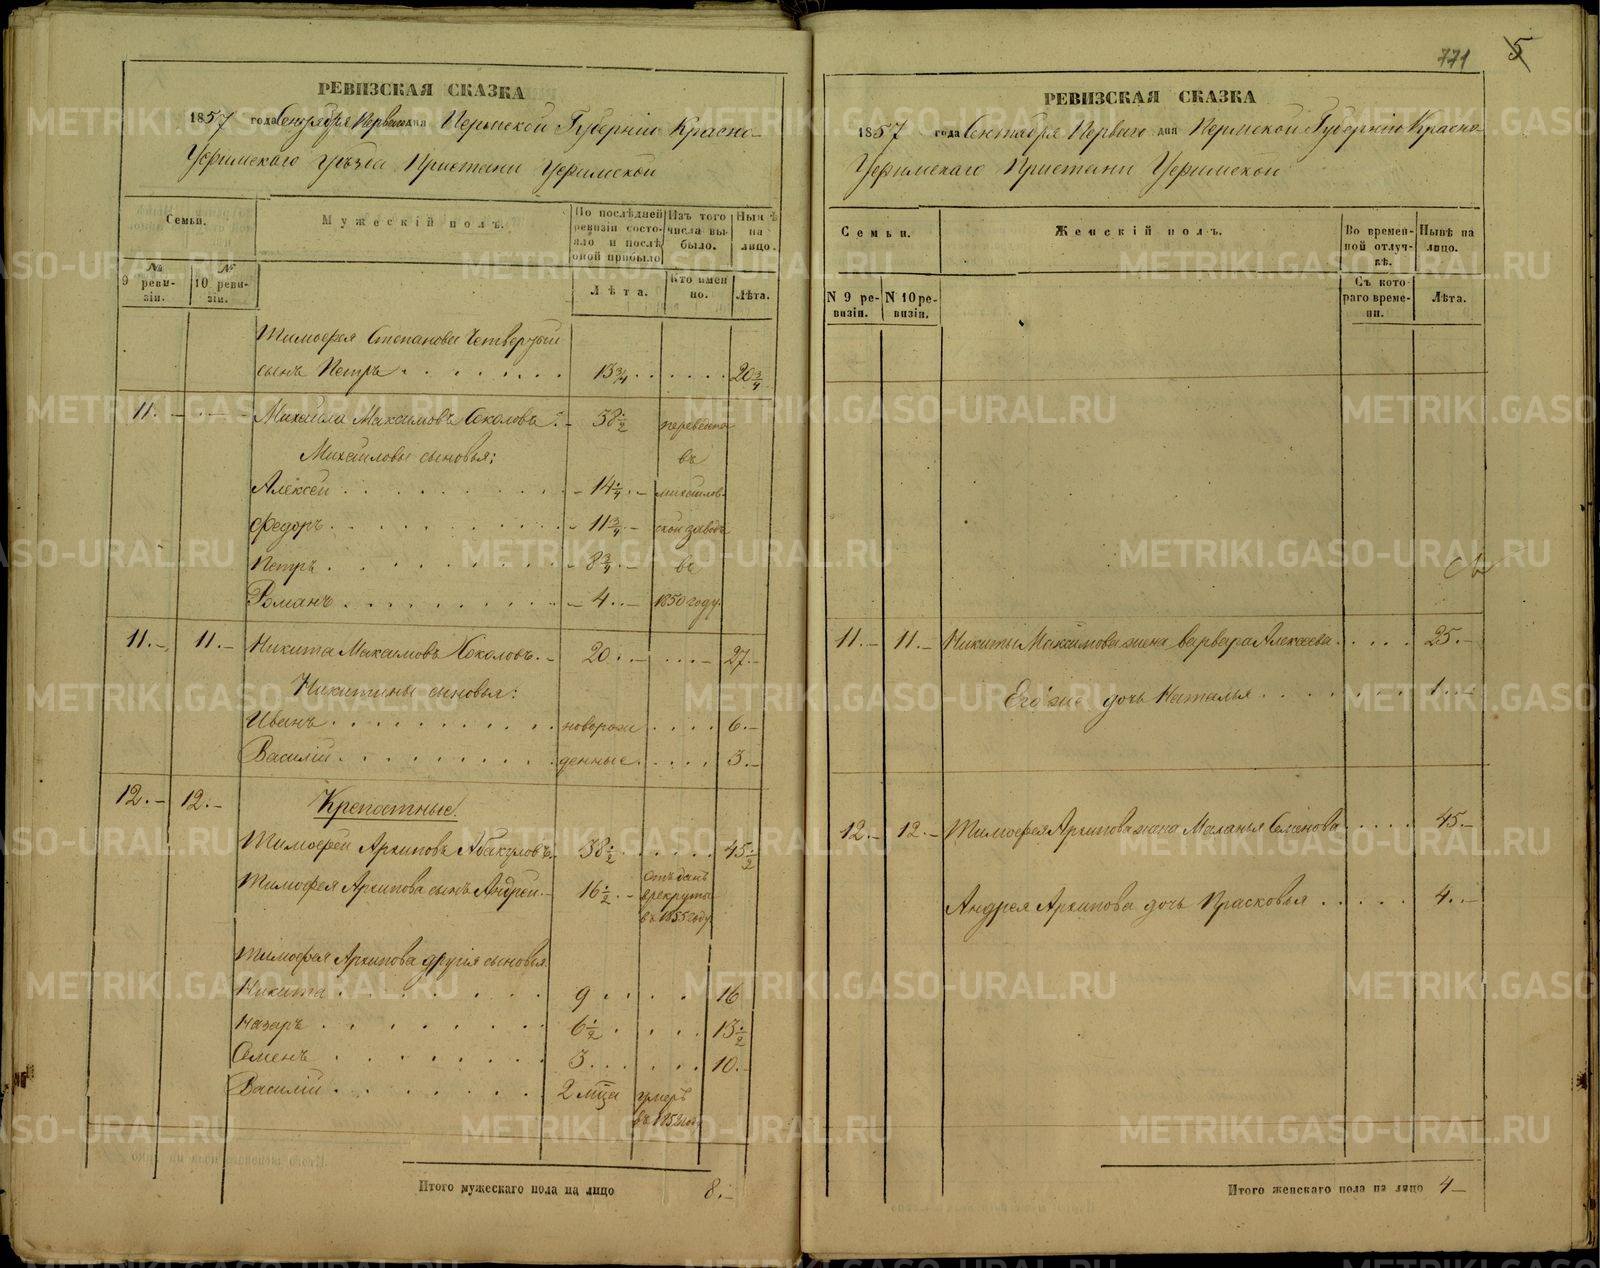 РЕВИЗСКАЯ СКАЗКА
1857 года Сентября Перваго дня Пермской Губерніи Красно-
Уфимскаго уѣзда Пристани Уфимской
Семьи.
Мужескій полъ.
По послѣдней ревизіи состояло и послѣ оной прибыло
Изъ того числа выбыло.
Нынѣ на лицо.
№ 9 ревизіи.
№ 10 ревизіи.
Лѣта.
Кто именно.
Лѣта.
Тимофея Степанова четвертый
сынъ Петръ 13 3/4 20 3/4
11. Михайла Максимовъ Соколовъ 38 1/2 переведены
Михайловы сыновья: въ
Алексѣй 14 1/4 михайлов-
Федоръ 11 3/4 ской заводъ
Петръ 8 3/4 въ
Романъ 4 1850 году.
11. 11. Никита Максимовъ Соколовъ. 20 27
Никитины сыновья:
Иванъ новорож 6
Василій денные 3
12. 12. Крепостные.
Тимофей Архиповъ Абакумовъ 38 1/2 45 1/2
Тимофея Архипова сынъ Андрей 16 1/2 Отъданъ
в рекруты
въ 1855 году
Тимофея Архипова другія сыновья
Никита 9 16
Назаръ 6 1/2 13 1/2
Семенъ 3 10
Василій 2 мца умеръ
въ году
Итого мужескаго пола на лицо 8.
771 5
РЕВИЗСКАЯ СКАЗКА
1857 года Сентября Перваго дня Пермской Губерніи Красно-
Уфимскаго Пристани Уфимской
Семьи.
Женскій полъ.
Во временной отлучкѣ.
Нынѣ на лицо.
N 9 ревизіи.
N 10 ревизіи.
Съ котораго времени.
Лѣта.
11. 11. Никиты Максимова жена варвара Алексеева 25
Его же дочь Наталья 1
12. 12. Тимофея Архипова жена Маланья Семенова 45
Андрея Архипова дочь Прасковья 4
Итого женскаго пола на лицо 4
METRIKI.GASO-URAL.RU